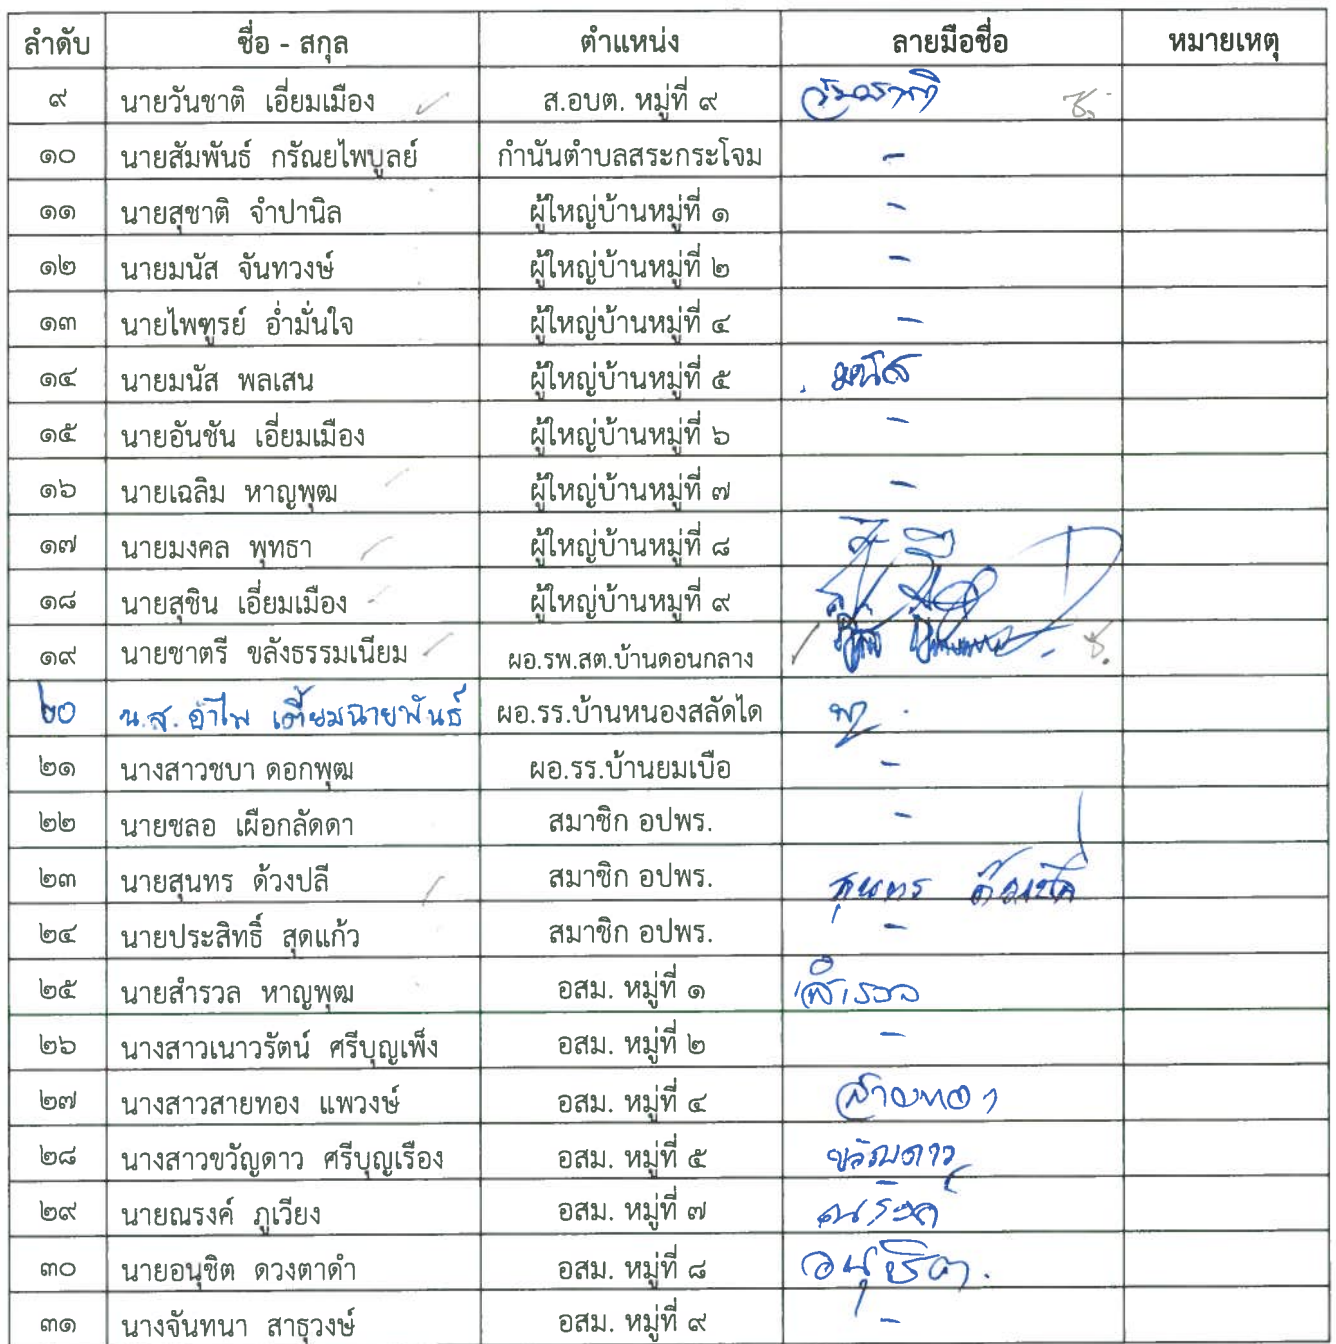 ลำดับ ชื่อ - สกุล ตำแหน่ง ลายมือชื่อ หมายเหตุ
๙ นายวันชาติ เอี่ยมเมือง ส.อบต. หมู่ที่ ๙ วันชาติ
๑๐ นายสัมพันธ์ กรัณยไพบูลย์ กำนันตำบลสระกระโจม -
๑๑ นายสุชาติ จำปานิล ผู้ใหญ่บ้านหมู่ที่ ๑ -
๑๒ นายมนัส จันทวงษ์ ผู้ใหญ่บ้านหมู่ที่ ๒ -
๑๓ นายไพฑูรย์ อ่ำมั่นใจ ผู้ใหญ่บ้านหมู่ที่ ๔ -
๑๔ นายมนัส พลเสน ผู้ใหญ่บ้านหมู่ที่ ๕ มนัส
๑๕ นายอันชัน เอี่ยมเมือง ผู้ใหญ่บ้านหมู่ที่ ๖ -
๑๖ นายเฉลิม หาญพุฒ ผู้ใหญ่บ้านหมู่ที่ ๗ -
๑๗ นายมงคล พุทธา ผู้ใหญ่บ้านหมู่ที่ ๘
๑๘ นายสุชิน เอี่ยมเมือง ผู้ใหญ่บ้านหมู่ที่ ๙
๑๙ นายชาตรี ขลังธรรมเนียม ผอ.รพ.สต.บ้านดอนกลาง
๒๐ น.ส. อำไพ เตี้ยมฉายพันธ์ ผอ.รร.บ้านหนองสลัดได
๒๑ นางสาวชบา ดอกพุฒ ผอ.รร.บ้านยมเบือ -
๒๒ นายชลอ เผือกลัดดา สมาชิก อปพร. -
๒๓ นายสุนทร ด้วงปลี สมาชิก อปพร. สุนทร ด้วงปลี
๒๔ นายประสิทธิ์ สุดแก้ว สมาชิก อปพร. -
๒๕ นายสำรวล หาญพุฒ อสม. หมู่ที่ ๑ สำรวล
๒๖ นางสาวเนาวรัตน์ ศรีบุญเพ็ง อสม. หมู่ที่ ๒ -
๒๗ นางสาวสายทอง แพวงษ์ อสม. หมู่ที่ ๔ สายทอง
๒๘ นางสาวขวัญดาว ศรีบุญเรือง อสม. หมู่ที่ ๕ ขวัญดาว
๒๙ นายณรงค์ ภูเวียง อสม. หมู่ที่ ๗ ณรงค์
๓๐ นายอนุชิต ดวงตาดำ อสม. หมู่ที่ ๘ อนุชิต.
๓๑ นางจันทนา สาธุวงษ์ อสม. หมู่ที่ ๙ -